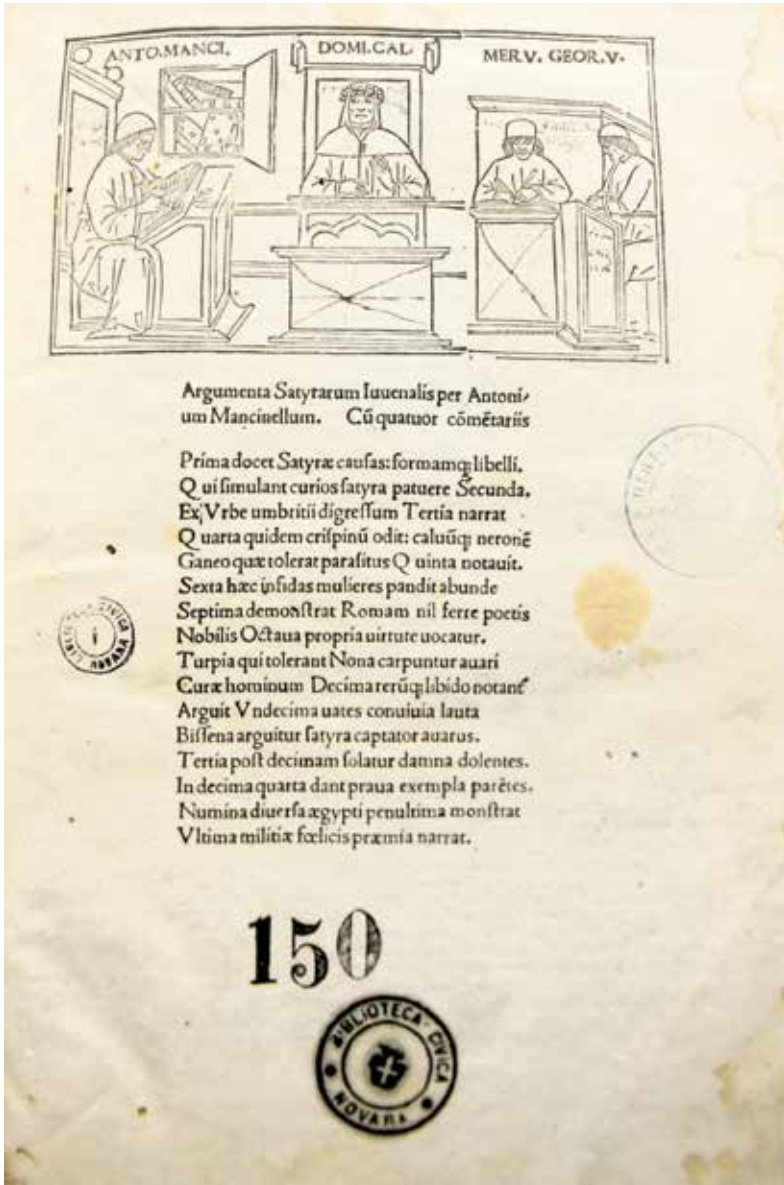 ANTO.MANCI. DOMI.CAL. MER.V. GEOR.V.
Argumenta Satyrarum Iuuenalis per Antoni-
um Mancinellum. Cū quatuor cōmētariis
Prima docet Satyræ causas: formamq; libelli.
Qui simulant curios satyra patuere Secunda.
Ex Vrbe umbritii digressum Tertia narrat
Quarta quidem crispinū odit: caluūq; neronē
Ganeo quæ tolerat parasitus Quinta notauit.
Sexta hæc infidas mulieres pandit abunde
Septima demonstrat Romam nil ferre poetis
Nobilis Octaua propria uirtute uocatur.
Turpia qui tolerant Nona carpuntur auari
Curæ hominum Decima rerūq; libido notant᷑
Arguit Vndecima uates conuiuia lauta
Bissena arguitur satyra captator auarus.
Tertia post decimam solatur damna dolentes.
In decima quarta dant praua exempla parētes.
Numina diuersa ægypti penultima monstrat
Vltima militiæ fœlicis præmia narrat.
150
BIBLIOTECA CIVICA
NOVARA